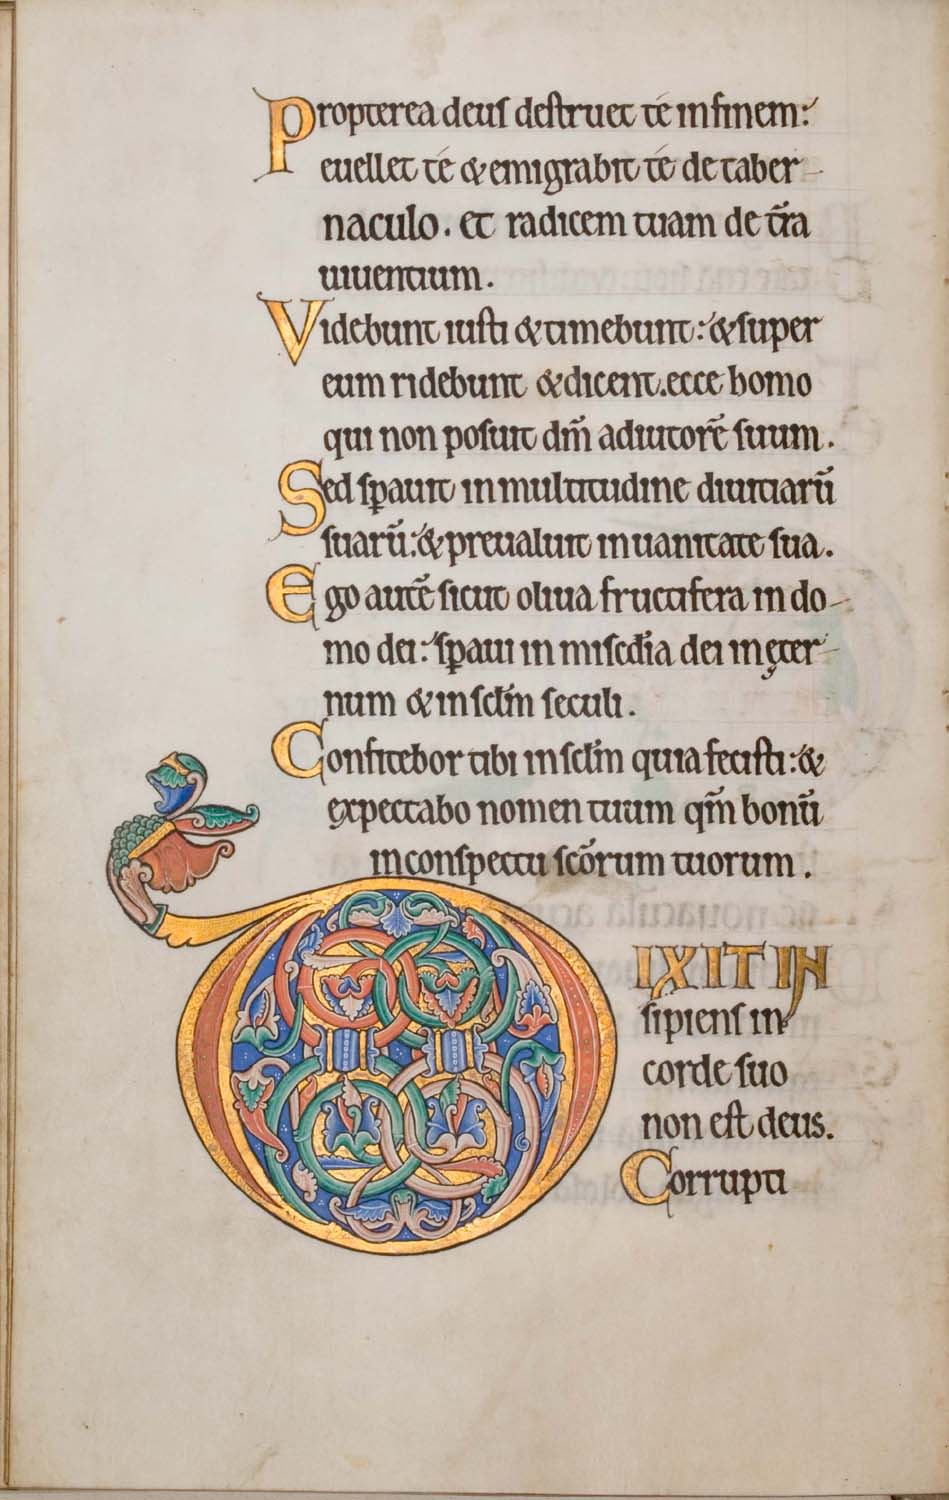 Propterea deus destruet té in finem:
euellet té & emigrabit té de taber-
naculo. et radicem tuam de t̄ra
uiuentium.
Videbunt iusti & timebunt: & super
eum ridebunt & dicent. ecce homo
qui non posuit dm̄ adiutorē suum.
Sed sꝑauit in multitudine diuitiarū
suarū: & preualuit in uanitate sua.
Ego autē sicut oliua fructifera in do-
mo dei: sꝑaui in misc̄dia dei in ęter-
num & in sc̄lm seculi.
Confitebor tibi in sc̄lm quia fecisti: &
expectabo nomen tuum qm̄ bonū
in conspectu sc̄orum tuorum.
DIXIT IN
sipiens in
corde suo
non est deus.
Corrupti